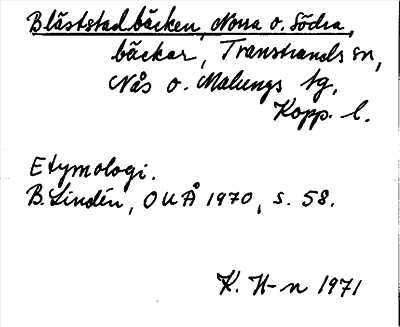 Blåststadbäcken, Norra o. Södra,
bäckar, Transtrands sn,
Nås o. Malungs tg,
Kopp. l.
Etymologi.
B. Lindén, OUÅ 1970, s. 58.
K. H-n 1971